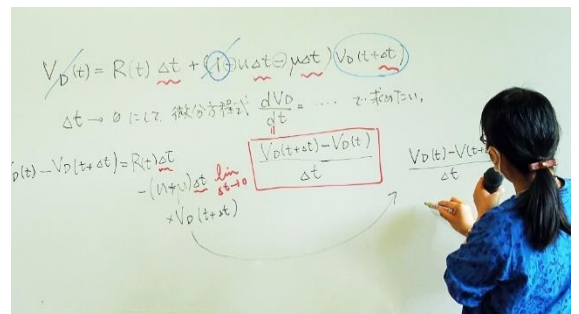 V_D(t) = R(t) Δt + (1 - uΔt - μΔt) V_D(t+Δt)
Δt → 0 にして 微分方程式 dV_D/dt = ‥‥ で 求めたい,
_D(t) - V_D(t+Δt) = R(t)Δt
- (u+μ)Δt
× V_D(t+Δt)
lim Δt→0
V_D(t+Δt) - V_D(t) / Δt
V_D(t) - V(t+ / Δt